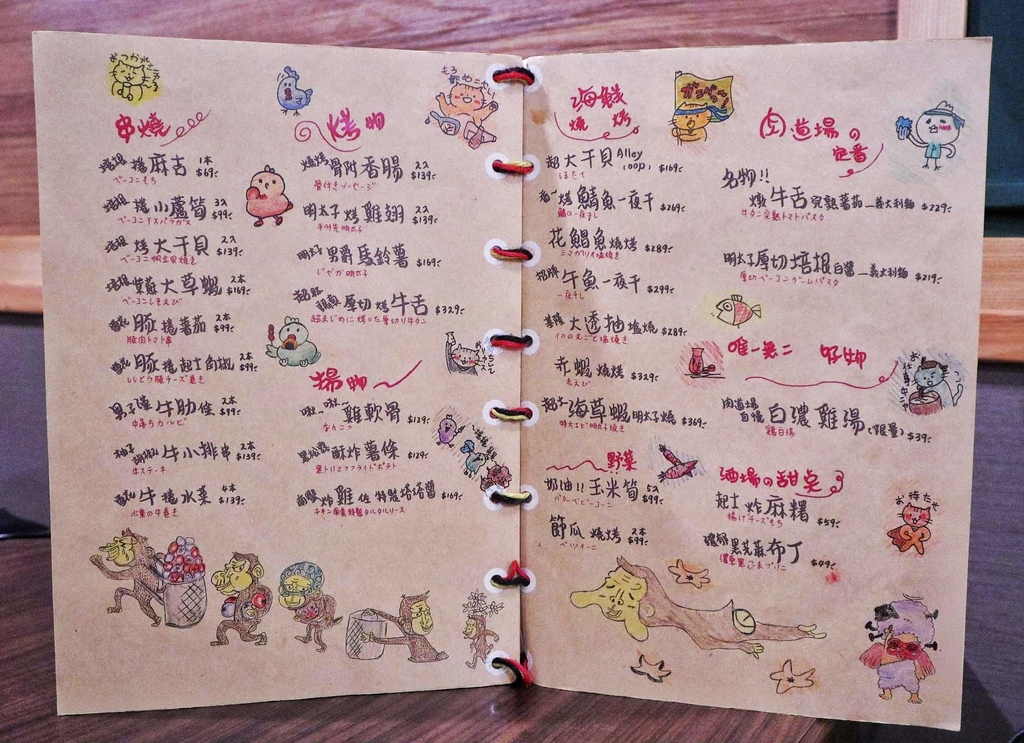 おつかれさまる
串燒
培根 捲麻吉 1本 $69.-
ベーコンもち
培根 捲小蘆筍 3入 $99.-
ベーコンアスパラガス
培根 烤大干貝 2入 $139.-
ベーコン帆立風焼き
培根紫蘇大草蝦 2本 $169.-
ベーコンしそえび
豚捲蕃茄 2本 $99.-
豚肉トマト串
豚捲起士角椒 2本 $99.-
ぶどう豚チーズ巻き
男子漢 牛肋條 2本 $99.-
中落ちカルビ
柚子胡椒 牛小排串 2本 $139.-
牛ステーキ
牛捲水菜 4本 $139.-
水菜の牛巻き
烤物
もう飲めにゃい
燒烤骨附香腸 2入 $139.-
骨付きソーセージ
明太子烤雞翅 2入 $139.-
手羽先明太子
明太子男爵馬鈴薯 $169.-
じゃが明太子
超級認真厚切烤牛舌 $329.-
超まじめに焼いた厚切り牛タン
揚物
啾~啾~雞軟骨 $129.-
なんこつ
黑松露酥炸薯條 $129.-
黒トリュフフライドポテト
南蠻炸雞佐特製塔塔醬 $169.-
チキン南蛮特製タルタルソース
海鮮燒烤
超大干貝 Alley oop! $169.-
ほたて
烤鯖魚一夜干 $269.-
鯖の一夜干し
花鯧魚燒烤 $289.-
シマガツオ塩焼き
招牌午魚一夜干 $299.-
一夜干し
大透抽塩燒 $289.-
イカの丸ごと塩焼き
赤蝦燒烤 $329.-
赤えび
超大海草蝦明太子燒 $369.-
特大エビ明太子焼き
野菜
奶油!!玉米筍 5入 $99.-
バターベビーコーン
節瓜燒烤 2本 $99.-
肉道場の定番
名物!!
燉牛舌完熟蕃茄_義大利麵 $229.-
牛タン完熟トマトパスタ
明太子厚切培根白醬_義大利麵 $219.-
唯一無二 好物
お仕事中ニャ
肉道場自慢 白濃雞湯(限量) $39.-
鶏白湯
酒場の甜点
お待たせ
起士炸麻糬 $59.-
揚げチーズもち
濃郁黑芝蔴布丁 $49.-
濃厚黒ごまプリン